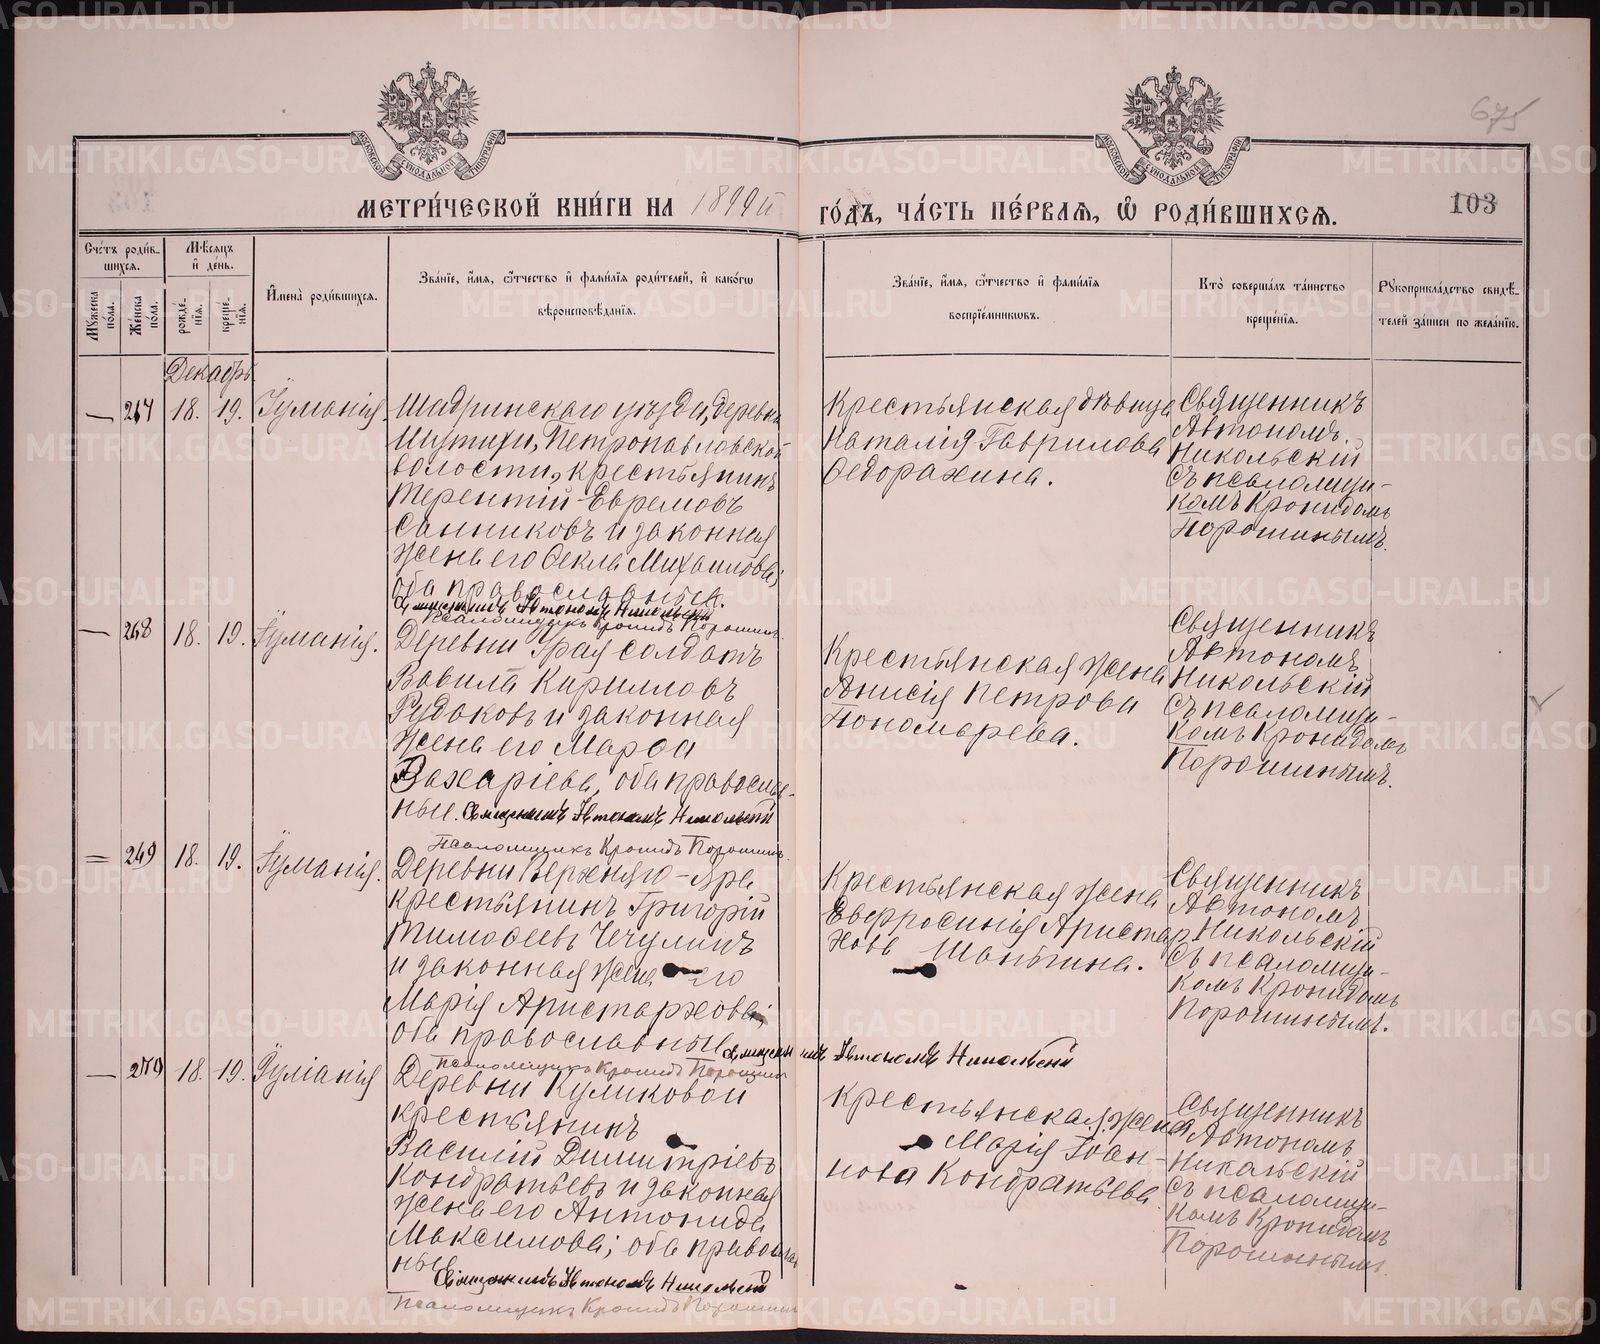 675
МЕТРИ́ЧЕСКОЙ КНИ́ГИ НА 1899й ГО́ДЪ, ЧА́СТЬ ПЕ́РВАѦ, Ѽ РОДИ́ВШИХСѦ.
103
Сче́тъ роди́в-
шихсѧ.
Мѣ́сѧцъ
и҆ де́нь.
Мꙋ́жеска
по́ла.
Же́нска
по́ла.
рожде́-
нїѧ.
креще́-
нїѧ.
И҆мена̀ роди́вшихсѧ.
Зва́нїе, и҆́мѧ, ѻ҆́тчество и҆ фами́лїѧ роди́телей, и҆ како́гѡ
вѣроисповѣ́данїѧ.
Зва́нїе, и҆́мѧ, ѻ҆́тчество и҆ фами́лїѧ
воспрїе́мникѡвъ.
Кто̀ соверша́лъ та́инство
креще́нїѧ.
Рꙋкоприкла́дство свидѣ́-
телей за́писи по жела́нїю.
Декабрь.
— 267 18. 19. Іуліанія.
Шадринскаго уѣзда, деревни
Шутихи, Петропавловской
волости, крестьянинъ
Терентій Ефремовъ
Санниковъ и законная
жена его Ѳекла Михаилова;
оба православные.
Священникъ Автономъ Никольскій
Псаломщикъ Кронидъ Порошинъ.
Крестьянская дѣвица
Наталія Гаврилова
Ѳедорахина.
Священникъ
Автономъ
Никольскій
съ псаломщи-
комъ Кронидомъ
Порошинымъ.
— 268 18. 19. Іуліанія.
Деревни Урая солдатъ
Вавила Кирилловъ
Рудаковъ и законная
жена его Марѳа
Захаріева, оба православ-
ные. Священникъ Автономъ Никольскій
Псаломщикъ Кронидъ Порошинъ.
Крестьянская жена
Анисія Петрова
Пономарева.
Священникъ
Автономъ
Никольскій
съ псаломщи-
комъ Кронидомъ
Порошинымъ.
= 269 18. 19. Іуліанія.
Деревни Верхняго-Яра
крестьянинъ Григорій
Тимоѳеевъ Чечулинъ
и законная жена его
Марія Аристархова;
оба православные. Священникъ Автономъ Никольскій
Псаломщикъ Кронидъ Порошинъ
Крестьянская жена
Евфросинія Аристар-
хова Шаньгина.
Священникъ
Автономъ
Никольскій
съ псаломщи-
комъ Кронидомъ
Порошинымъ.
— 270 18. 19. Іуліанія
Деревни Куликовой
крестьянинъ
Василій Димитріевъ
Кондратьевъ и законная
жена его Антонида
Максимова; оба православ
ные
Священникъ Автономъ Никольскій
Псаломщикъ Кронидъ Порошинъ
Крестьянская жена
Марія Іоан-
нова Кондратьева
Священникъ
Автономъ
Никольскій
съ псаломщи-
комъ Кронидомъ
Порошинымъ.